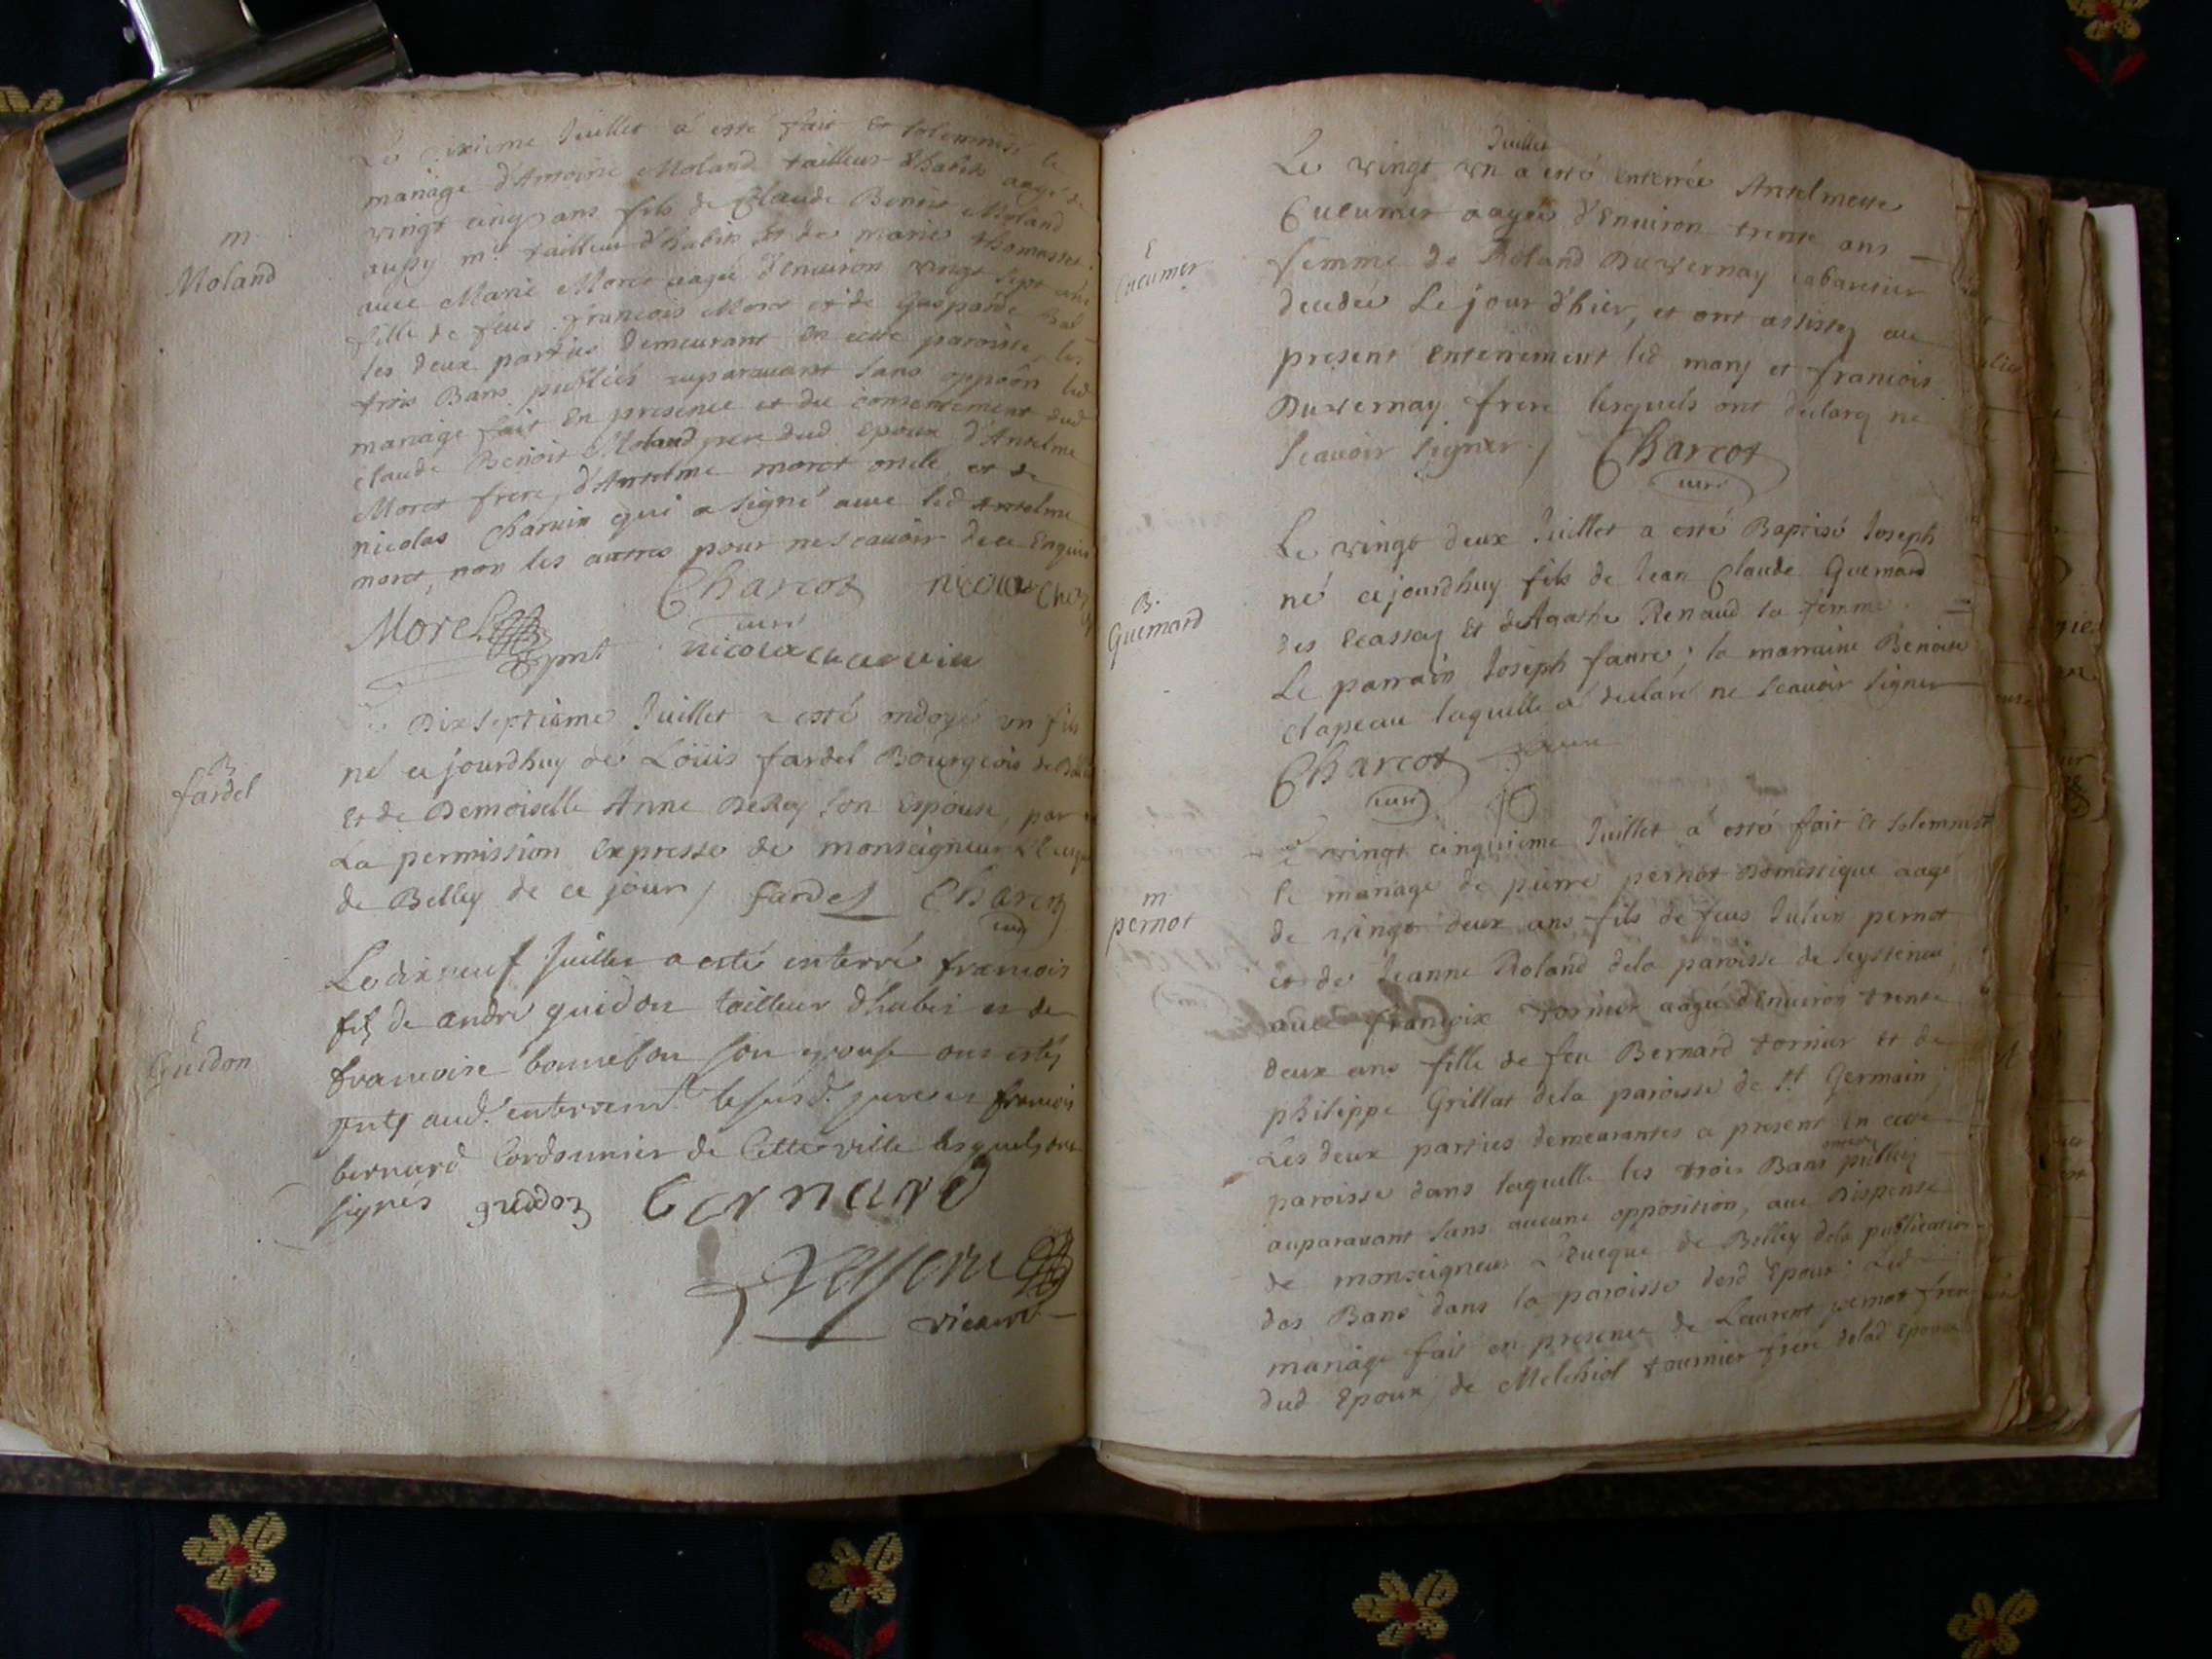 m
Moland
Le sixieme Juillet a esté fait et solemnisé le
mariage d'Antoine Moland tailleur d'habits aagé de
vingt cinq ans fils de Claude Benoit Moland
aussy mr. tailleur d'habits et de marie thomasset
avec Marie Moret aagée d'environ vingt sept ans
fille de feus francois Moret et de Gasparde
les deux parties demeurant en cette paroisse, les
trois Bans publiés auparavant sans oppoôn led
mariage fait En presence et du consentement dud
claude Benoit Moland pere dud Epoux, d'Anselme
Moret frere, d'Anselme moret oncle et de
nicolas Charvin qui a signé avec led Anselme
moret, non les autres pour ne scavoir de ce Enquis
Charcot
Morel curé
pnt nicola charvin
B
fardel
Le Dix septieme Juillet a esté ondoyé un fils
né cejourdhuy de Loüis fardel Bourgeois de
Et de Demoiselle Anne DeRey son Espouse, par
La permission Expresse de monseigneur L'Evesque
de Belley de ce jour / fardel Charcot
curé
E
Guidon
Le dix neuf Juillet a esté enterré francois
fils de andré guidon tailleur dhabis et de
francoise bonnebou son epouse ont estés
pnts aud. enterremt. le susd. pere et francois
bernard Cordonnier de Cette ville lesquels ont
signés guidon bernard
vicaire
E
Cucumer
Juillet
Le vingt un a esté enterrée Anselmette
Cucumer aagée d'Environ trente ans
femme de Roland Duvernay cabaretier
decedée Le jour d'hier, et ont assistez au
present enterrement led mary et francois
Duvernay frere lesquels ont declarez ne
scavoir signer / Charcot
curé
B.
Guemard
Le vingt deux Juillet a esté Baptisé Joseph
né cejourdhuy fils de Jean Claude Guemard
des Ecassaz Et de Agathe Renaud sa femme.
Le parrain Joseph favre; la marraine Benoite
clapeau laquelle a declaré ne scavoir signer
Charcot favre
curé
m
pernot
Le vingt cinquieme Juillet a esté fait et solemnisé
le mariage de pierre pernot domestique aagé
de vingt deux ans fils de feus Julien pernot
et de Jeanne Roland dela paroisse de seyssenin
avec francoise tornier aagée d'Environ trente
deux ans fille de feu Bernard tornier et de
philippe Grillat dela paroisse de st Germain,
Les deux parties demeurantes a present en cette
paroisse dans laquelle les trois Bans publiez
auparavant sans aucune opposition, avec Dispense
de monseigneur L'Eveque de Belley dela publication
des Bans dans la paroisse dud Epoux: Led
mariage fait en presence de Laurent pernot frere
dud Epoux, de Melchiol tournier frere delad Epouse